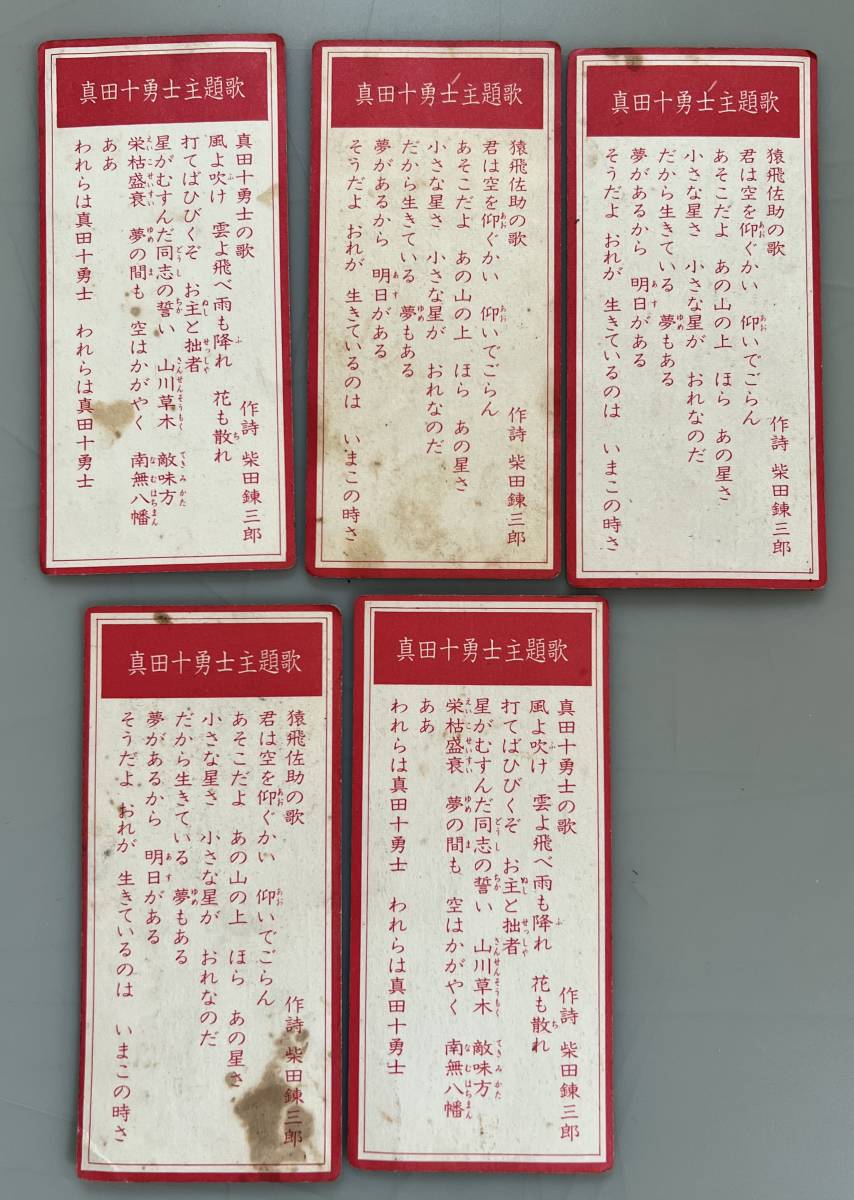 真田十勇士主題歌
真田十勇士の歌
作詩 柴田錬三郎
風よ吹け 雲よ飛べ雨も降れ 花も散れ
打てばひびくぞ お主と拙者
星がむすんだ同志の誓い 山川草木 敵味方
栄枯盛衰 夢の間も 空はかがやく 南無八幡
ああ
われらは真田十勇士 われらは真田十勇士
真田十勇士主題歌
猿飛佐助の歌
作詩 柴田錬三郎
君は空を仰ぐかい 仰いでごらん
あそこだよ あの山の上 ほら あの星さ
小さな星さ 小さな星が おれなのだ
だから生きている 夢もある
夢があるから 明日がある
そうだよ おれが 生きているのは いまこの時さ
真田十勇士主題歌
猿飛佐助の歌
作詩 柴田錬三郎
君は空を仰ぐかい 仰いでごらん
あそこだよ あの山の上 ほら あの星さ
小さな星さ 小さな星が おれなのだ
だから生きている 夢もある
夢があるから 明日がある
そうだよ おれが 生きているのは いまこの時さ
真田十勇士主題歌
猿飛佐助の歌
作詩 柴田錬三郎
君は空を仰ぐかい 仰いでごらん
あそこだよ あの山の上 ほら あの星さ
小さな星さ 小さな星が おれなのだ
だから生きている 夢もある
夢があるから 明日がある
そうだよ おれが 生きているのは いまこの時さ
真田十勇士主題歌
真田十勇士の歌
作詩 柴田錬三郎
風よ吹け 雲よ飛べ雨も降れ 花も散れ
打てばひびくぞ お主と拙者
星がむすんだ同志の誓い 山川草木 敵味方
栄枯盛衰 夢の間も 空はかがやく 南無八幡
ああ
われらは真田十勇士 われらは真田十勇士